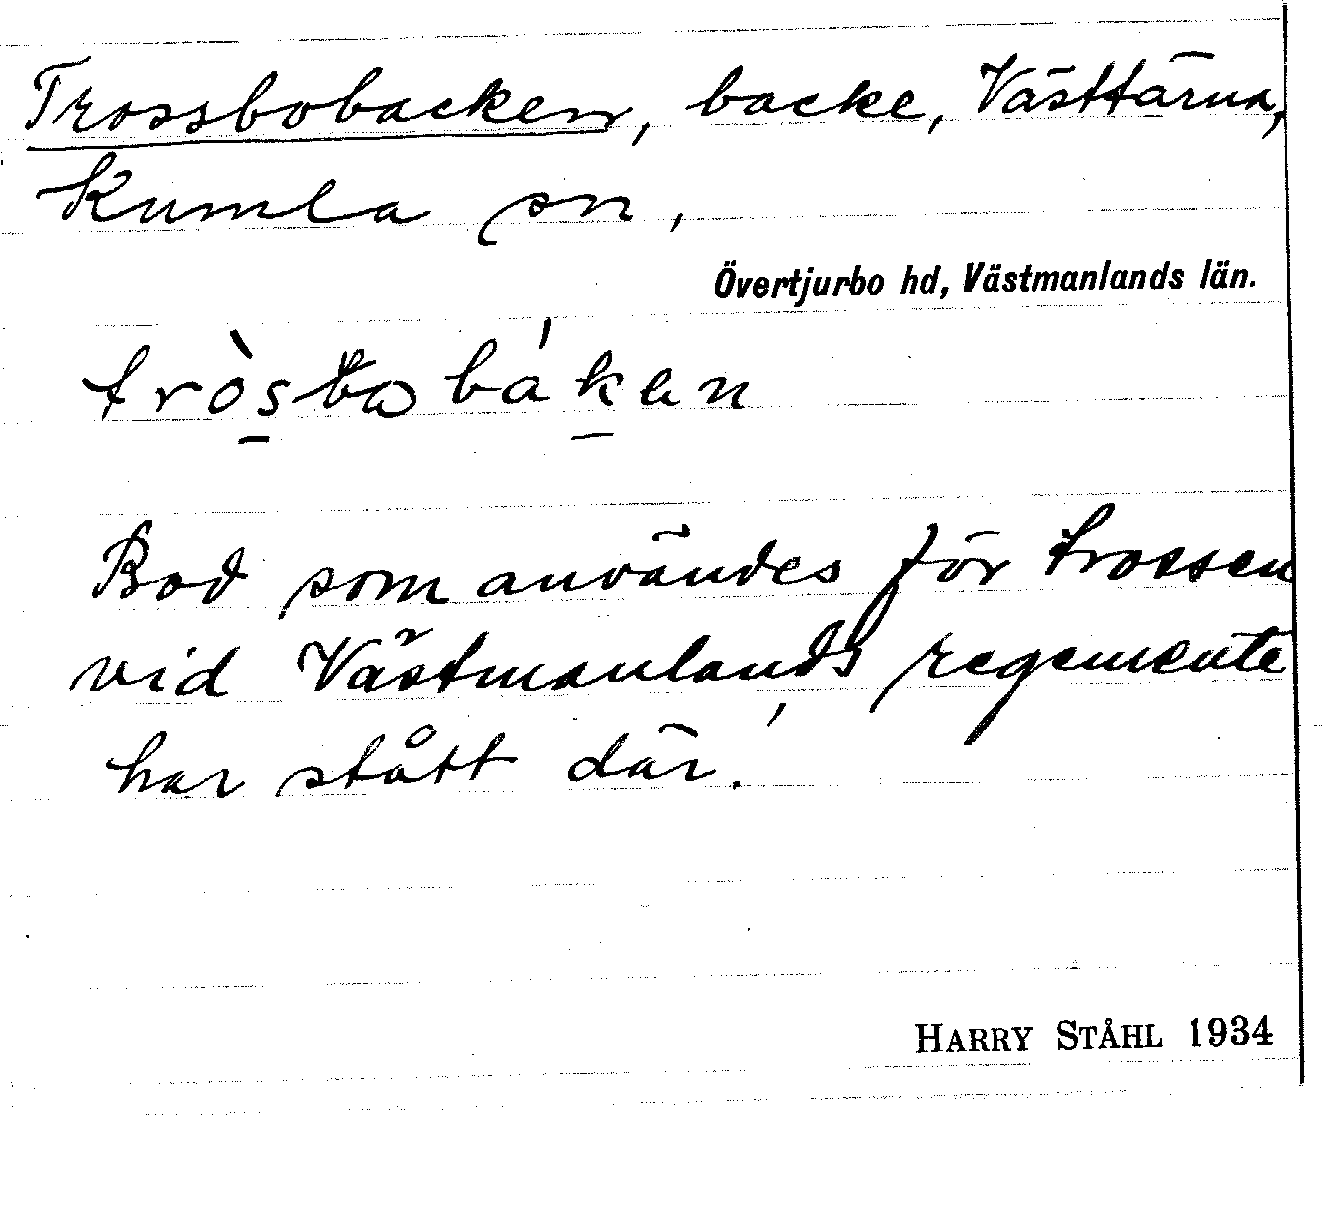 Trossbobacken, backe, Västtärna,
Kumla sn,
Övertjurbo hd, Västmanlands län.
tròsbobákan
Bod som användes för trossen
vid Västmanlands regemente
har stått där.
HARRY STÅHL 1934